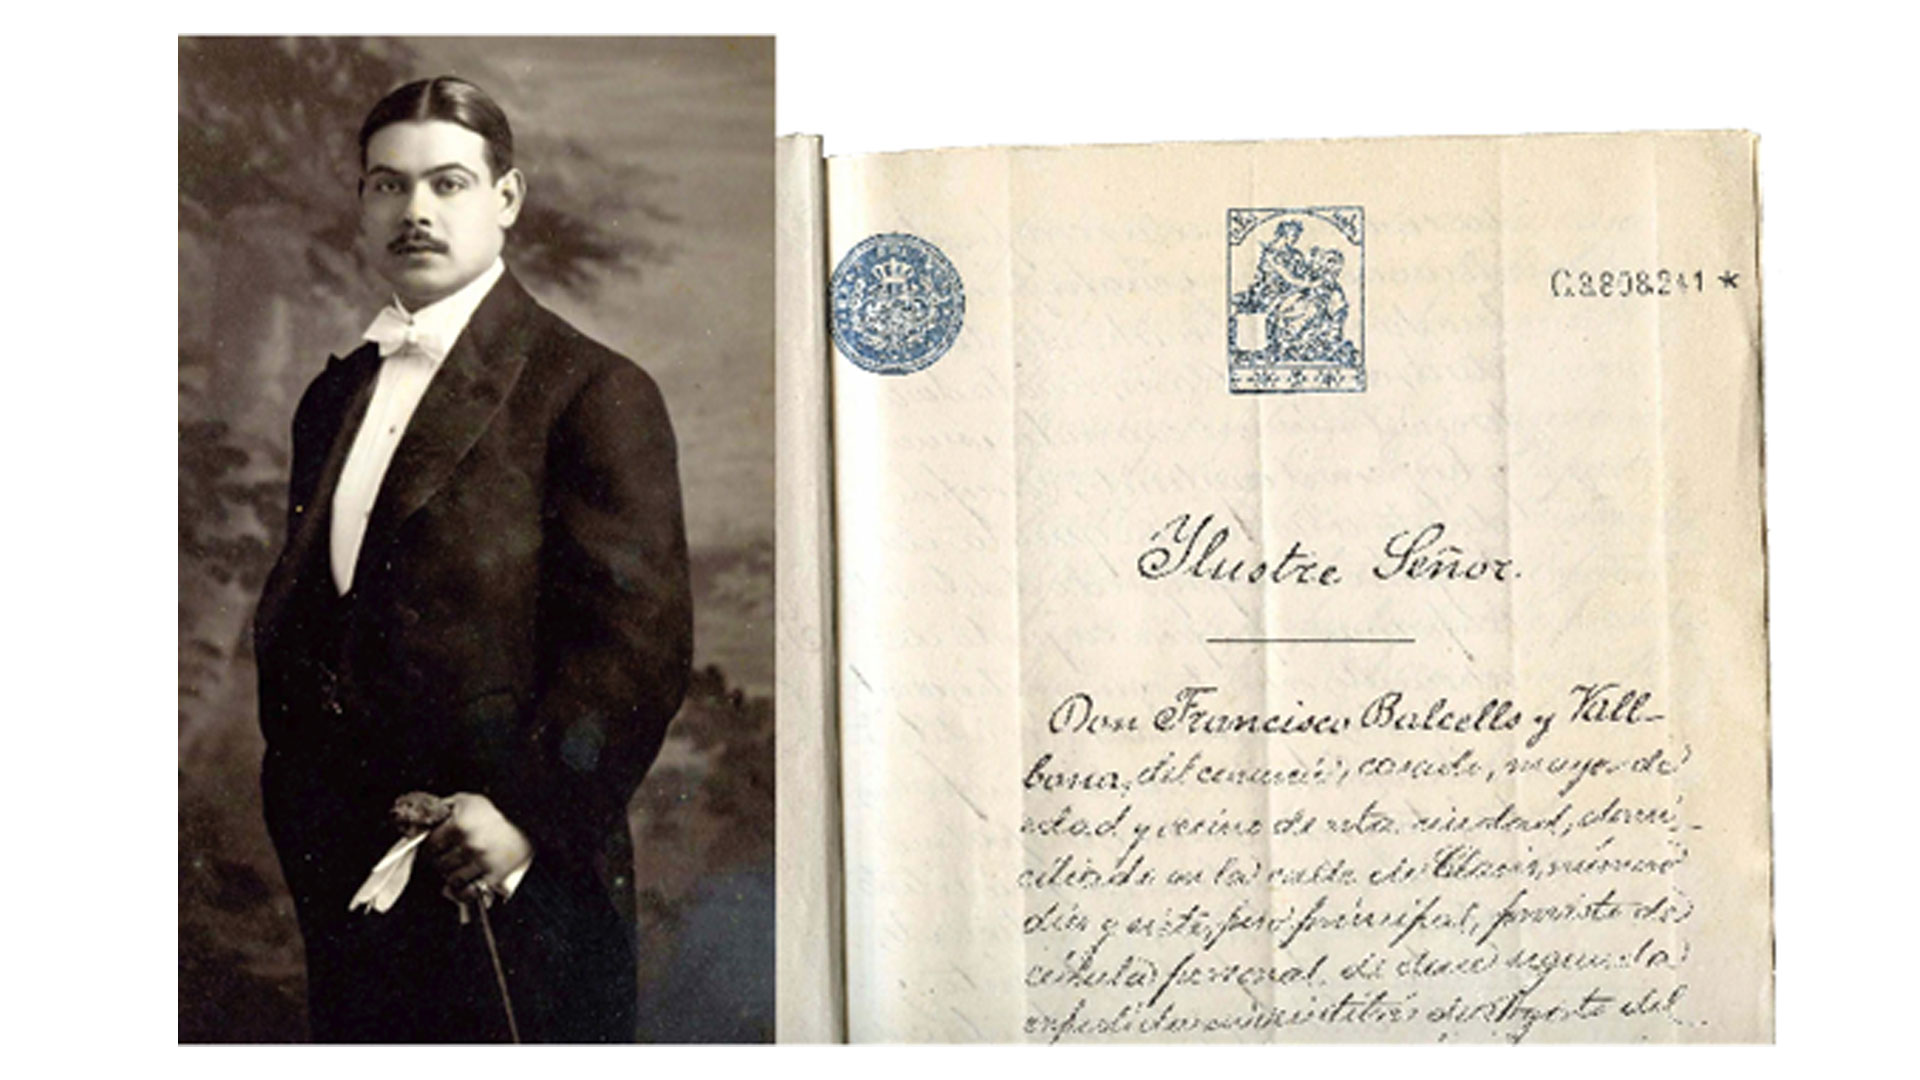 C.3.808.241 *
Ylustre Señor.
Don Francisco Balcells y Vall-
bona, del comercio, casado, mayor de
edad y vecino de esta ciudad, domi-
ciliado en la calle de Claris, número
diez y siete, piso principal, provisto de
cédula personal de clase segunda
expedida en veintitrés de Agosto del